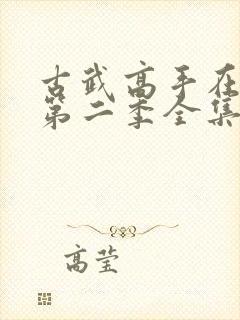 古武高手在
第二季全集
高莹